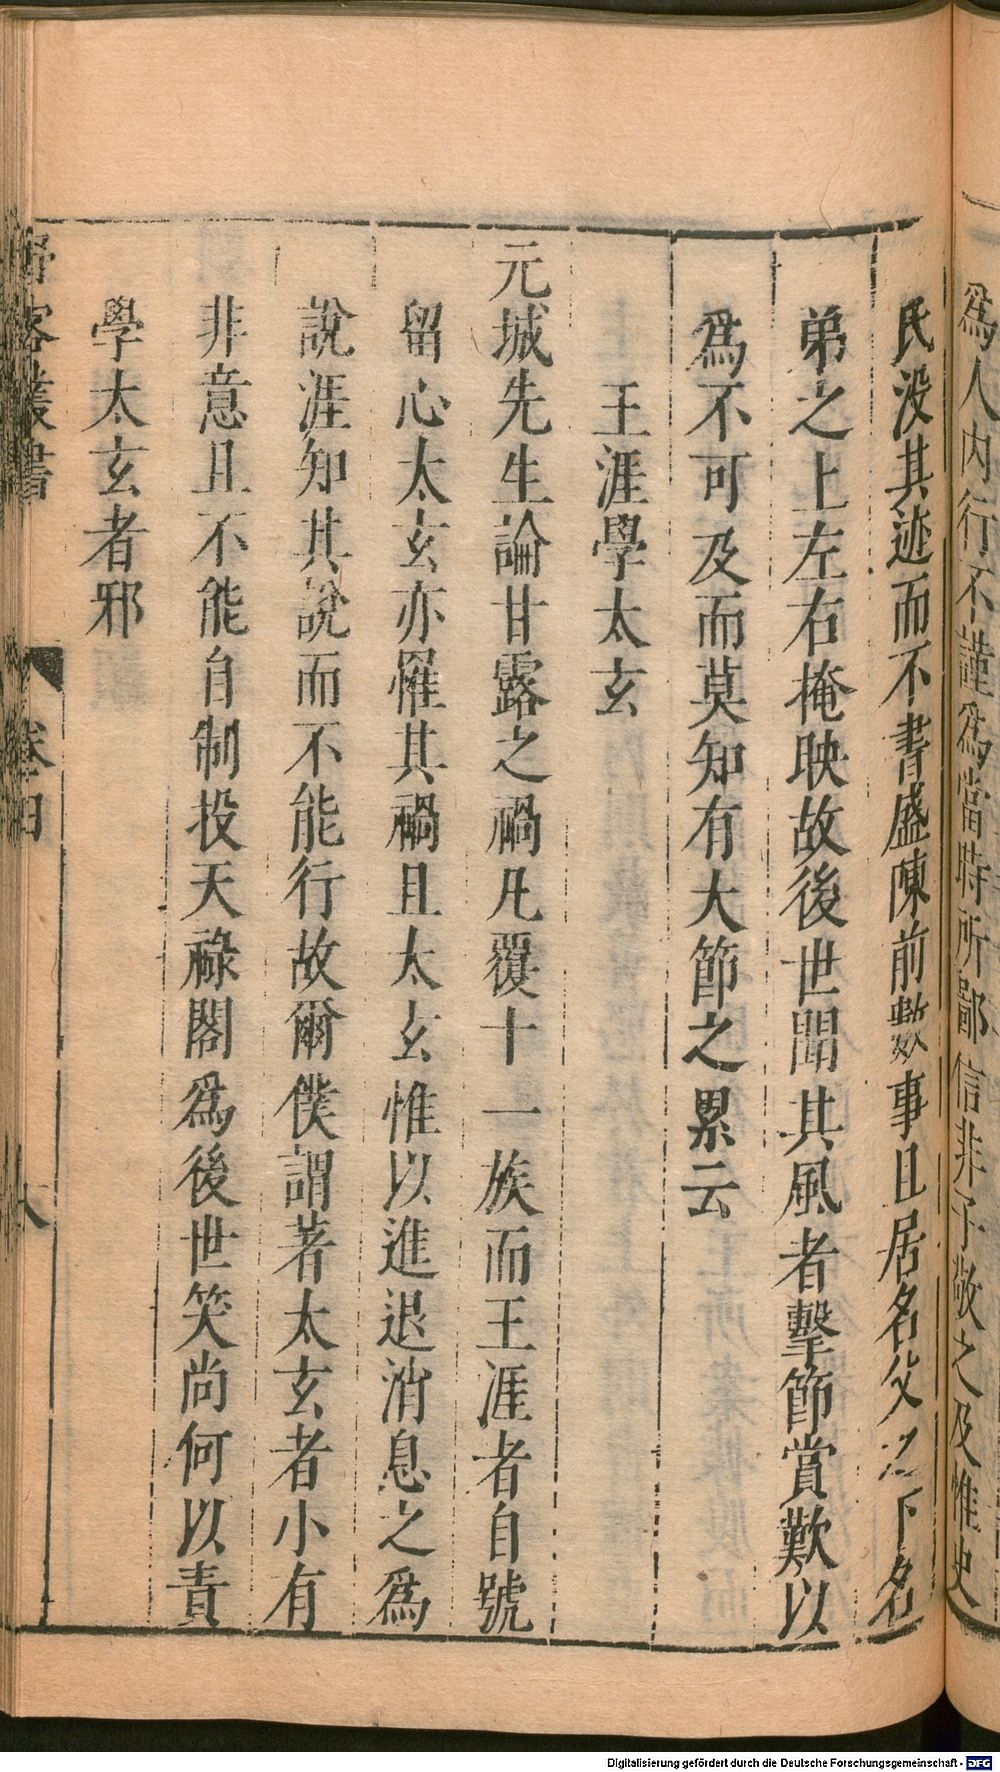 爲人內行不謹爲當時所鄙信非子敬之及惟史
氏沒其迹而不書盛陳前數事且居名父之下名
弟之上左右掩映故後世聞其風者擊節賞歎以
爲不可及而莫知有大節之累云
王涯學太玄
元城先生論甘露之禍凡覆十一族而王涯者自號
留心太玄亦罹其禍且太玄惟以進退消息之爲
說涯知其說而不能行故爾僕謂著太玄者小有
非意且不能自制投天祿閣爲後世笑尚何以責
學太玄者邪
野客叢書
卷四
八
Digitalisierung gefördert durch die Deutsche Forschungsgemeinschaft - DFG